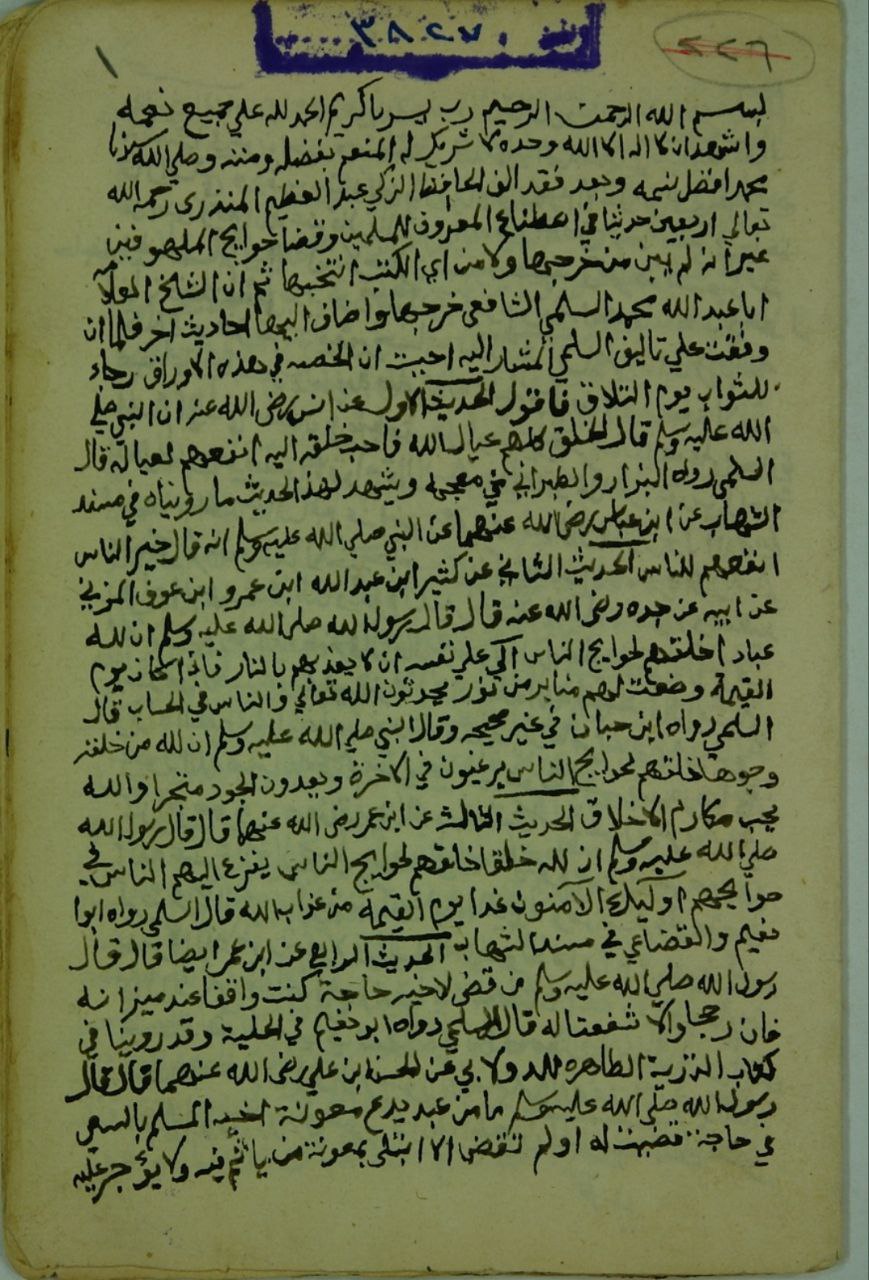 ٣٨٤٧٠
٢٢٦
١
بسم الله الرحمن الرحيم رب يسر يا كريم الحمد لله علي جميع نعمه
واشهد ان لا اله الا الله وحده لا شريك له المنعم بفضله ومننه وصلي الله علي سيدنا
محمد افضل نبيه وبعد فقد الف الحافظ الزكي عبد العظيم المنذري رحمه الله
تعالي اربعين حديثا في اصطناع المعروف للمسلمين وقضا حوايج الملهوفين
غير انه لم يبين من خرجها ولا من اي الكتب انتخبها ثم ان الشيخ
ابا عبد الله محمد السلمي الشافعي خرجها واضاف اليها احاديث اخر فلما ان
وقفت علي تاليف السلمي المشار اليه احببت ان الخصه في هذه الاوراق رجاء
للثواب يوم التلاق فاقول الحديث الاول عن انس رضي الله عنه ان النبي صلي
الله عليه وسلم قال الخلق كلهم عيال الله فاحب خلقه اليه انفعهم لعياله قال
السلمي رواه البزار والطبراني في معجمه ويشهد لهذا الحديث ما رويناه في مسند
الشهاب عن ابن عباس رضي الله عنهما عن النبي صلي الله عليه وسلم انه قال خير الناس
انفعهم للناس الحديث الثاني عن كثير ابن عبد الله ابن عمرو ابن عوف المزني
عن ابيه عن جده رضي الله عنه قال قال رسول الله صلي الله عليه وسلم ان لله
عبادا خلقهم لحوايج الناس الي علي نفسه ان لا يعذبهم بالنار فاذا كان يوم
القيمة وضعت لهم منابر من نور يحدثون الله تعالي والناس في الحساب قال
السلمي رواه ابن حبان في غير صحيحه وقال النبي صلي الله عليه وسلم ان لله من خلقه
وجوها خلقهم لحوايج الناس يرغبون في الاخرة ويعدون الجود متجرا والله
يحب مكارم الاخلاق الحديث الثالث عن ابن عمر رضي الله عنهما قال قال رسول الله
صلي الله عليه وسلم ان لله خلقا خلقهم لحوايج الناس يفزع اليهم الناس في
حوايجهم اوليك الآمنون غدا يوم القيمة من عذاب الله قال السلمي رواه ابوا
نعيم والقضاعي في مسند الشهاب الحديث الرابع عن ابن عمر ايضا قال قال
رسول الله صلي الله عليه وسلم من قضي لاخيه حاجة كنت واقفا عند ميزانه
فان رجح والا شفعت له قال السلمي رواه ابو نعيم في الحلية وقد روينا في
كتاب الذرية الطاهره للدولابي عن الحسن ابن علي رضي الله عنهما قال قال
رسول الله صلي الله عليه وسلم ما من عبد يدع معونة اخيه المسلم بالسعي
في حاجة قضيت له او لم تقض الا ابتلي بمعونة من ياثم فيه ولا يؤجر عليه